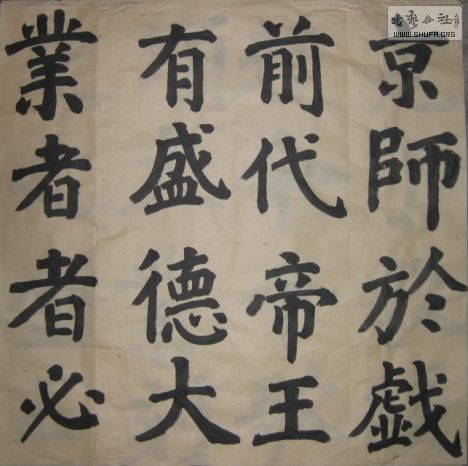 京師於戯
前代帝王
有盛德大
業者者必
書藝公社
WWW.SHUFA.ORG